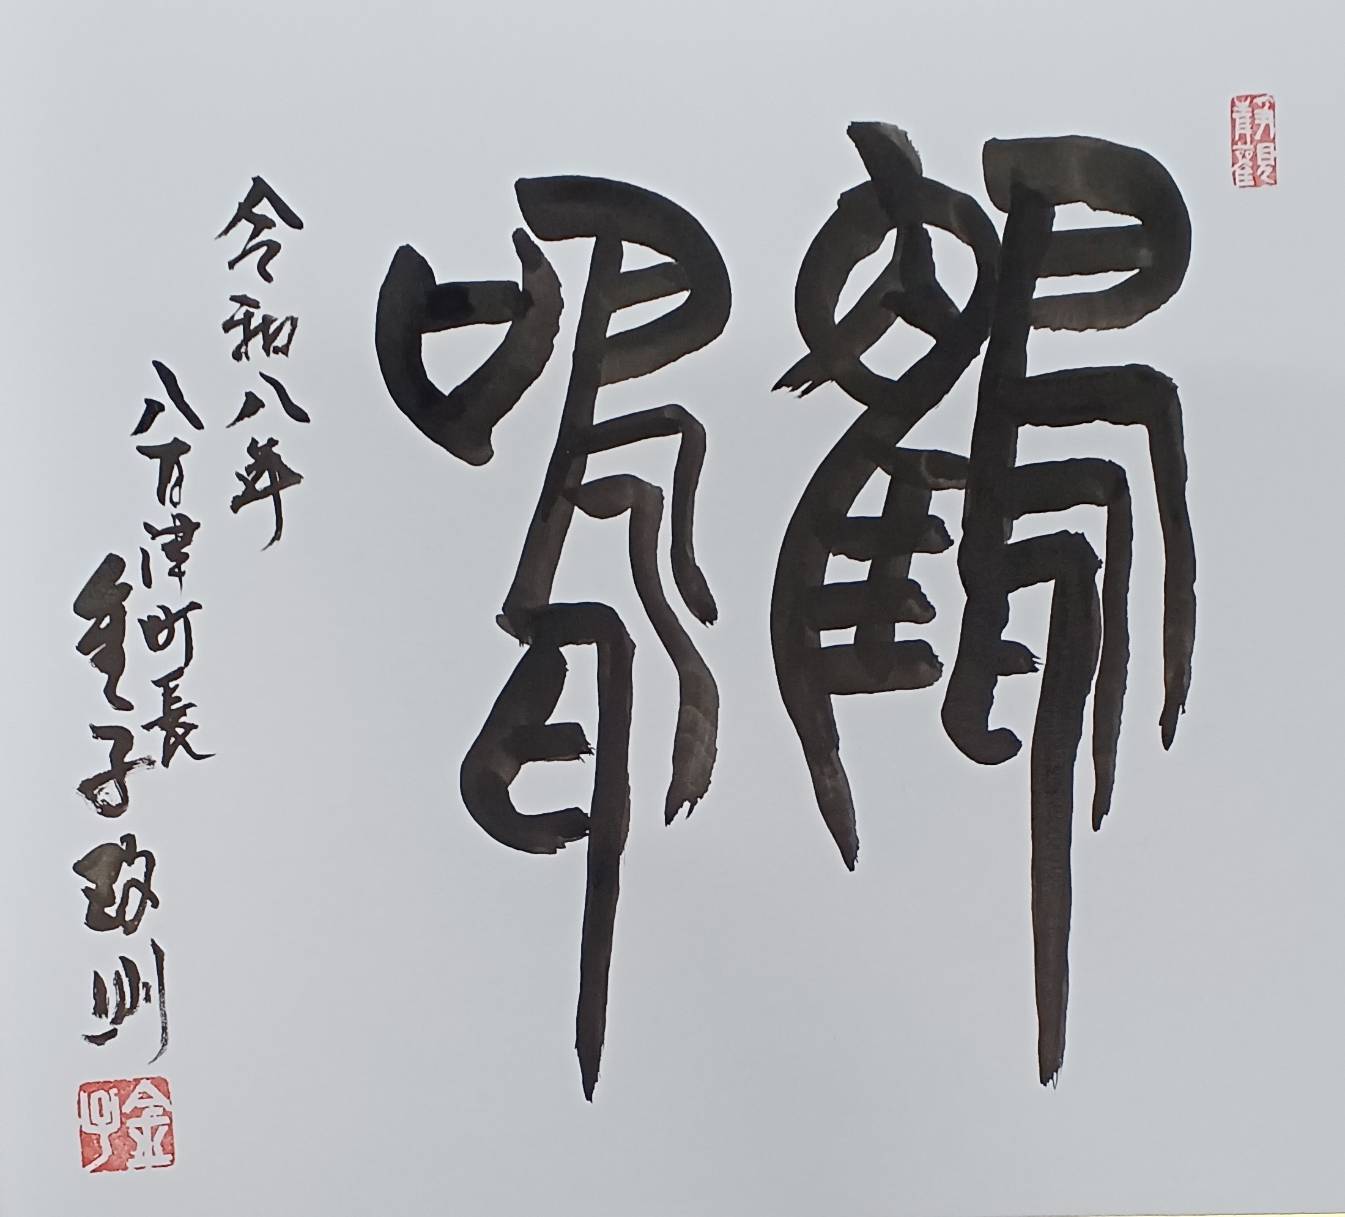 鶴鳴
令和八年
八百津町長
金子政則
金子